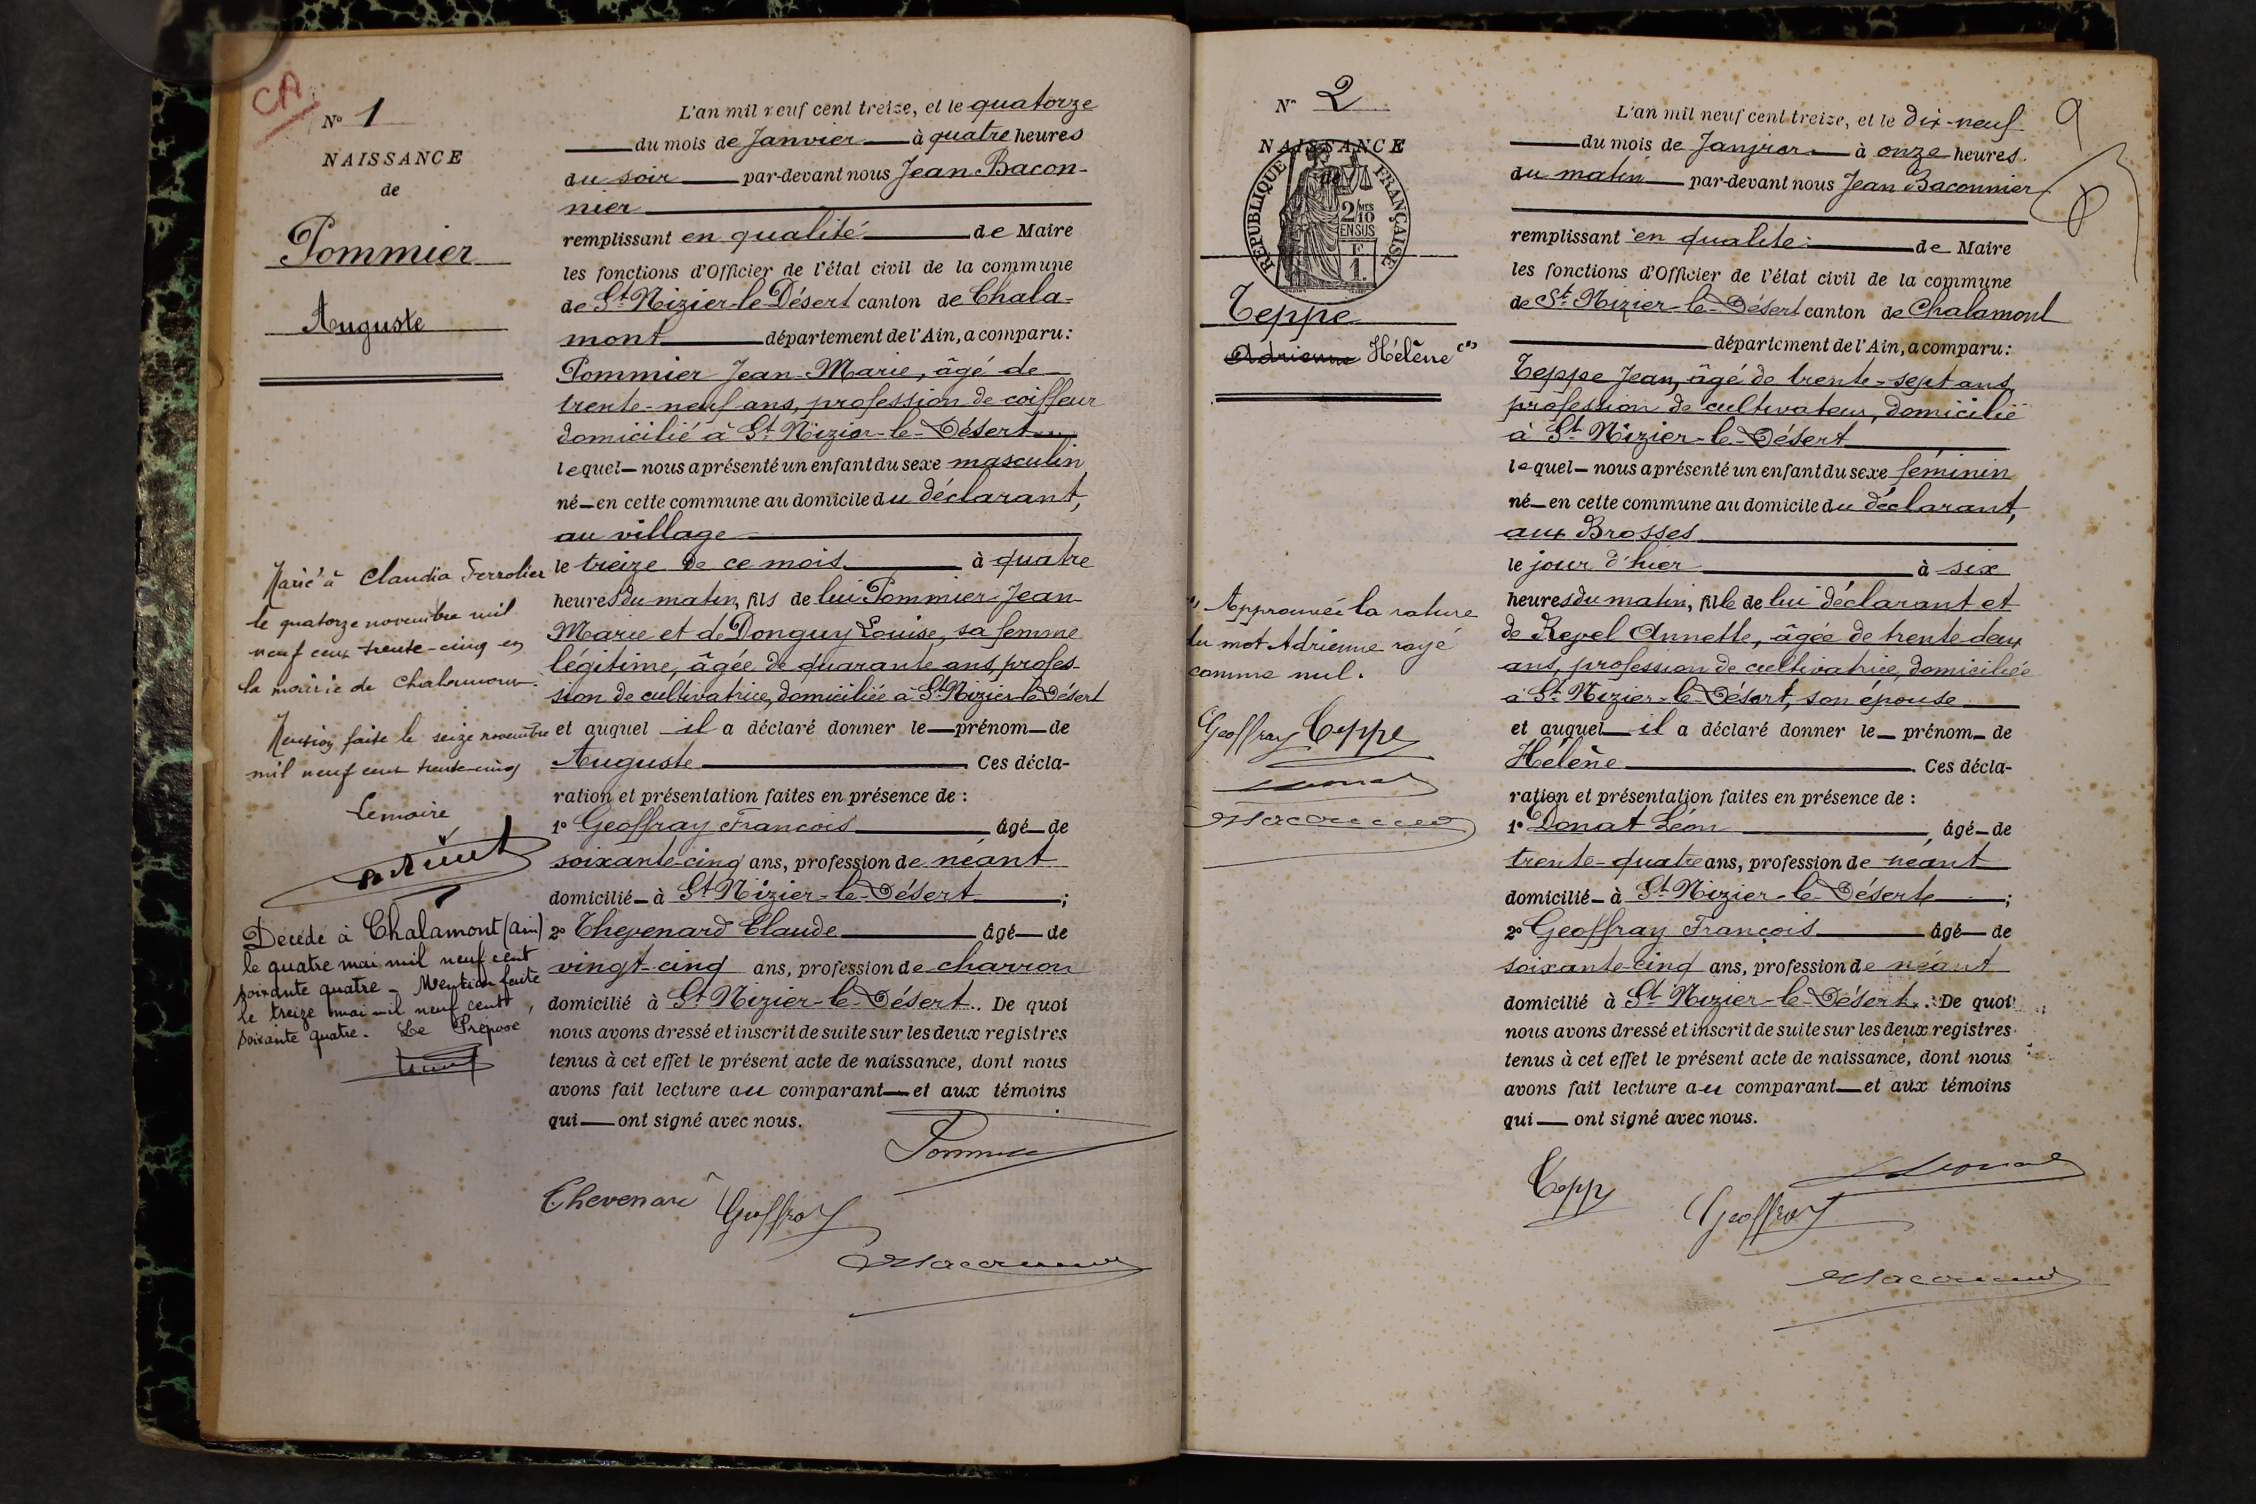 CA
N° 1
NAISSANCE
de
Pommier
Auguste
L'an mil neuf cent treize, et le quatorze
du mois de Janvier à quatre heures
du soir par-devant nous Jean Bacon-
nier
remplissant en qualité de Maire
les fonctions d'Officier de l'état civil de la commune
de St Nizier-le-Désert canton de Chala-
mont département de l'Ain, a comparu :
Pommier Jean-Marie, âgé de
trente-neuf ans, profession de coiffeur
domicilié à St Nizier-le-Désert
lequel nous a présenté un enfant du sexe masculin
né en cette commune au domicile du déclarant,
au village
le treize de ce mois à quatre
heures du matin, fils de lui Pommier Jean
Marie et de Donguy Louise, sa femme
légitime, âgée de quarante ans, profes-
sion de cultivatrice, domiciliée à St Nizier-le-Désert
et auquel il a déclaré donner le prénom de
Auguste Ces décla-
ration et présentation faites en présence de :
1° Geoffray François âgé de
soixante-cinq ans, profession de néant
domicilié à St Nizier-le-Désert ;
2° Thevenard Claude âgé de
vingt-cinq ans, profession de charron
domicilié à St Nizier-le-Désert. De quoi
nous avons dressé et inscrit de suite sur les deux registres
tenus à cet effet le présent acte de naissance, dont nous
avons fait lecture au comparant et aux témoins
qui ont signé avec nous.
Pommier
Thevenard Geoffray
Baconnier
Marié à Claudia Ferrolier
le quatorze novembre mil
neuf cent trente-cinq en
la mairie de Chalamont.
Mention faite le seize novembre
mil neuf cent trente-cinq
Le maire
Décédé à Chalamont (Ain)
le quatre mai mil neuf cent
soixante quatre - Mention faite
le treize mai mil neuf cent
soixante quatre. Le Préposé,
N° 2
NAISSANCE
de
RÉPUBLIQUE FRANÇAISE
2/10 MES
EN SUS
1
Teppe
Adrienne Hélène (1)
9
L'an mil neuf cent treize, et le dix-neuf
du mois de Janvier à onze heures
du matin par-devant nous Jean Baconnier
remplissant en qualité de Maire
les fonctions d'Officier de l'état civil de la commune
de St Nizier-le-Désert canton de Chalamont
département de l'Ain, a comparu :
Teppe Jean, âgé de trente-sept ans,
profession de cultivateur, domicilié
à St Nizier-le-Désert
lequel nous a présenté un enfant du sexe féminin
né en cette commune au domicile du déclarant,
aux Brosses
le jour d'hier à six
heures du matin, fille de lui déclarant et
de Revel Annette, âgée de trente deux
ans, profession de cultivatrice, domiciliée
à St Nizier-le-Désert, son épouse
et auquel il a déclaré donner le prénom de
Hélène Ces décla-
ration et présentation faites en présence de :
1° Donat Léon âgé de
trente-quatre ans, profession de néant
domicilié à St Nizier-le-Désert ;
2° Geoffray François âgé de
soixante-cinq ans, profession de néant
domicilié à St Nizier-le-Désert. De quoi
nous avons dressé et inscrit de suite sur les deux registres
tenus à cet effet le présent acte de naissance, dont nous
avons fait lecture au comparant et aux témoins
qui ont signé avec nous.
Teppe Donat
Geoffray
Baconnier
(1) Approuvée la rature
du mot Adrienne rayé
comme nul.
Geoffray Teppe
Donat
Baconnier